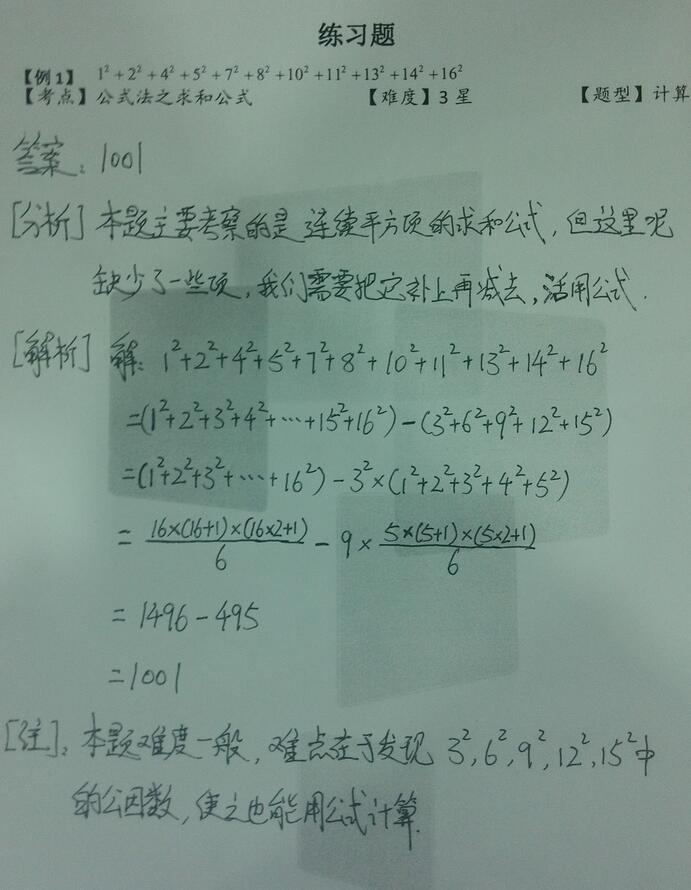 练习题
【例1】 1²+2²+4²+5²+7²+8²+10²+11²+13²+14²+16²
【考点】公式法之求和公式 【难度】3 星 【题型】计算
答案：1001
[分析] 本题主要考察的是连续平方项的求和公式，但这里呢
缺少了一些项，我们需要把它补上再减去，活用公式.
[解析] 解：1²+2²+4²+5²+7²+8²+10²+11²+13²+14²+16²
=(1²+2²+3²+4²+…+15²+16²)-(3²+6²+9²+12²+15²)
=(1²+2²+3²+…+16²)-3²×(1²+2²+3²+4²+5²)
= 16×(16+1)×(16×2+1)/6 - 9× 5×(5+1)×(5×2+1)/6
= 1496-495
=1001
[注]：本题难度一般，难点在于发现 3²,6²,9²,12²,15²中
的公因数，使之也能用公式计算.